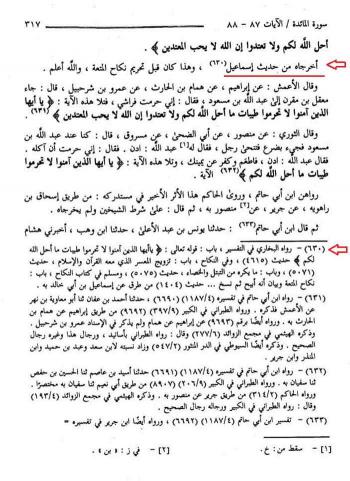 سورة المائدة / الآيات ٨٧ - ٨٨ ٣١٧
أحل الله لكم ولا تعتدوا إن الله لا يحب المعتدين ﴾.
أخرجاه من حديث إسماعيل (٦٣٠) ، وهذا كان قبل تحريم نكاح المتعة ، والله أعلم .
وقال الأعمش : عن إبراهيم ، عن همام بن الحارث ، عن عمرو بن شرحبيل ، قال : جاء
معقل بن مقرن إلى عبد الله بن مسعود ، فقال : إني حرمت فراشي ، فتلا هذه الآية : ﴿ يا أيها
الذين آمنوا لا تحرموا طيبات ما أحل الله لكم ولا تعتدوا إن الله لا يحب المعتدين ﴾ (٦٣١) .
وقال الثوري : عن منصور ، عن أبي الضحى ، عن مسروق ، قال : كنا عند عبد الله بن
مسعود فجيء بضرع فتنحى رجل ، فقال له [١] عبد الله : ادن . فقال : إني حرمت أن آكله .
فقال عبد الله : ادن ، فاطعم وكفر عن يمينك ، وتلا هذه الآية : ﴿ يا أيها الذين آمنوا لا تحرموا
طيبات ما أحل الله لكم ﴾ (٦٣٢) الآية .
رواهن ابن أبي حاتم ، وروى الحاكم هذا الأثر الأخير في مستدركه : من طريق إسحاق بن
راهويه ، عن جرير ، عن [٢] منصور به ، ثم قال : على شرط الشيخين ولم يخرجاه .
ثم قال ابن أبي حاتم (٦٣٣) : حدثنا يونس بن عبد الأعلى ، حدثنا ابن وهب ، أخبرني هشام
(٦٣٠) - رواه البخاري في التفسير ، باب : قوله تعالى : ﴿ ياأيها الذين آمنوا لا تحرموا طيبات ما أحل الله
لكم ﴾ حديث (٤٦١٥) ، وفي النكاح ، باب : تزويج المعسر الذي معه القرآن والإسلام ، حديث
(٥٠٧١) ، وباب : ما يكره من التبتل والخصاء ، حديث (٥٠٧٥) ، ومسلم في كتاب النكاح ، باب :
نكاح المتعة وبيان أنه أبيح ثم نسخ ... حديث (١٤٠٤) من طرق عن إسماعيل بن أبي خالد به .
(٦٣١) - رواه ابن أبي حاتم في تفسيره (١١٨٧/٤) (٦٦٩٠) ، حدثنا أحمد بن عفان ثنا أبو معاوية بن نهر
عن الأعمش فذكره . ورواه الطبراني في الكبير (٣٩٧/٩) (٩٦٩٢) من طريق إبراهيم عن همام بن
الحارث به . ورواه أيضًا برقم (٩٦٩٣) عن إبراهيم عن همام ولم يذكر في الإسناد عمرو بن شرحبيل .
وذكره الهيثمي في مجمع الزوائد (٢٧٧/٦) وقال : رواه الطبراني بأسانيد ، ورجال هذا وغيره رجال
الصحيح . وذكره أيضًا السيوطي في الدر المنثور (٥٤٧/٢) وزاد نسبته لابن سعد وعبد بن حميد وابن
المنذر وابن جرير .
(٦٣٢) - رواه ابن أبي حاتم في تفسيره (١١٨٧/٤) (٦٦٩١) حدثنا أسيد بن عاصم ثنا الحسين بن حفص
ثنا سفيان به . ورواه الطبراني في الكبير (٢٠٦/٩) (٨٩٠٧) من طريق أبي نعيم ثنا سفيان به مختصرًا .
ورواه الحاكم (٣١٤/٢) من طريق جرير عن منصور به . وذكره الهيثمي في مجمع الزوائد (١٩٣/٤)
وقال : رواه الطبراني في الكبير ورجاله رجال الصحيح .
(٦٣٣) - رواه ابن أبي حاتم في تفسيره (١١٨٧/٤) (٦٦٩٢) ، ورواه أيضًا ابن جرير في تفسيره =
[١] - سقط من : خ . [٢] - في ز : « بن » .